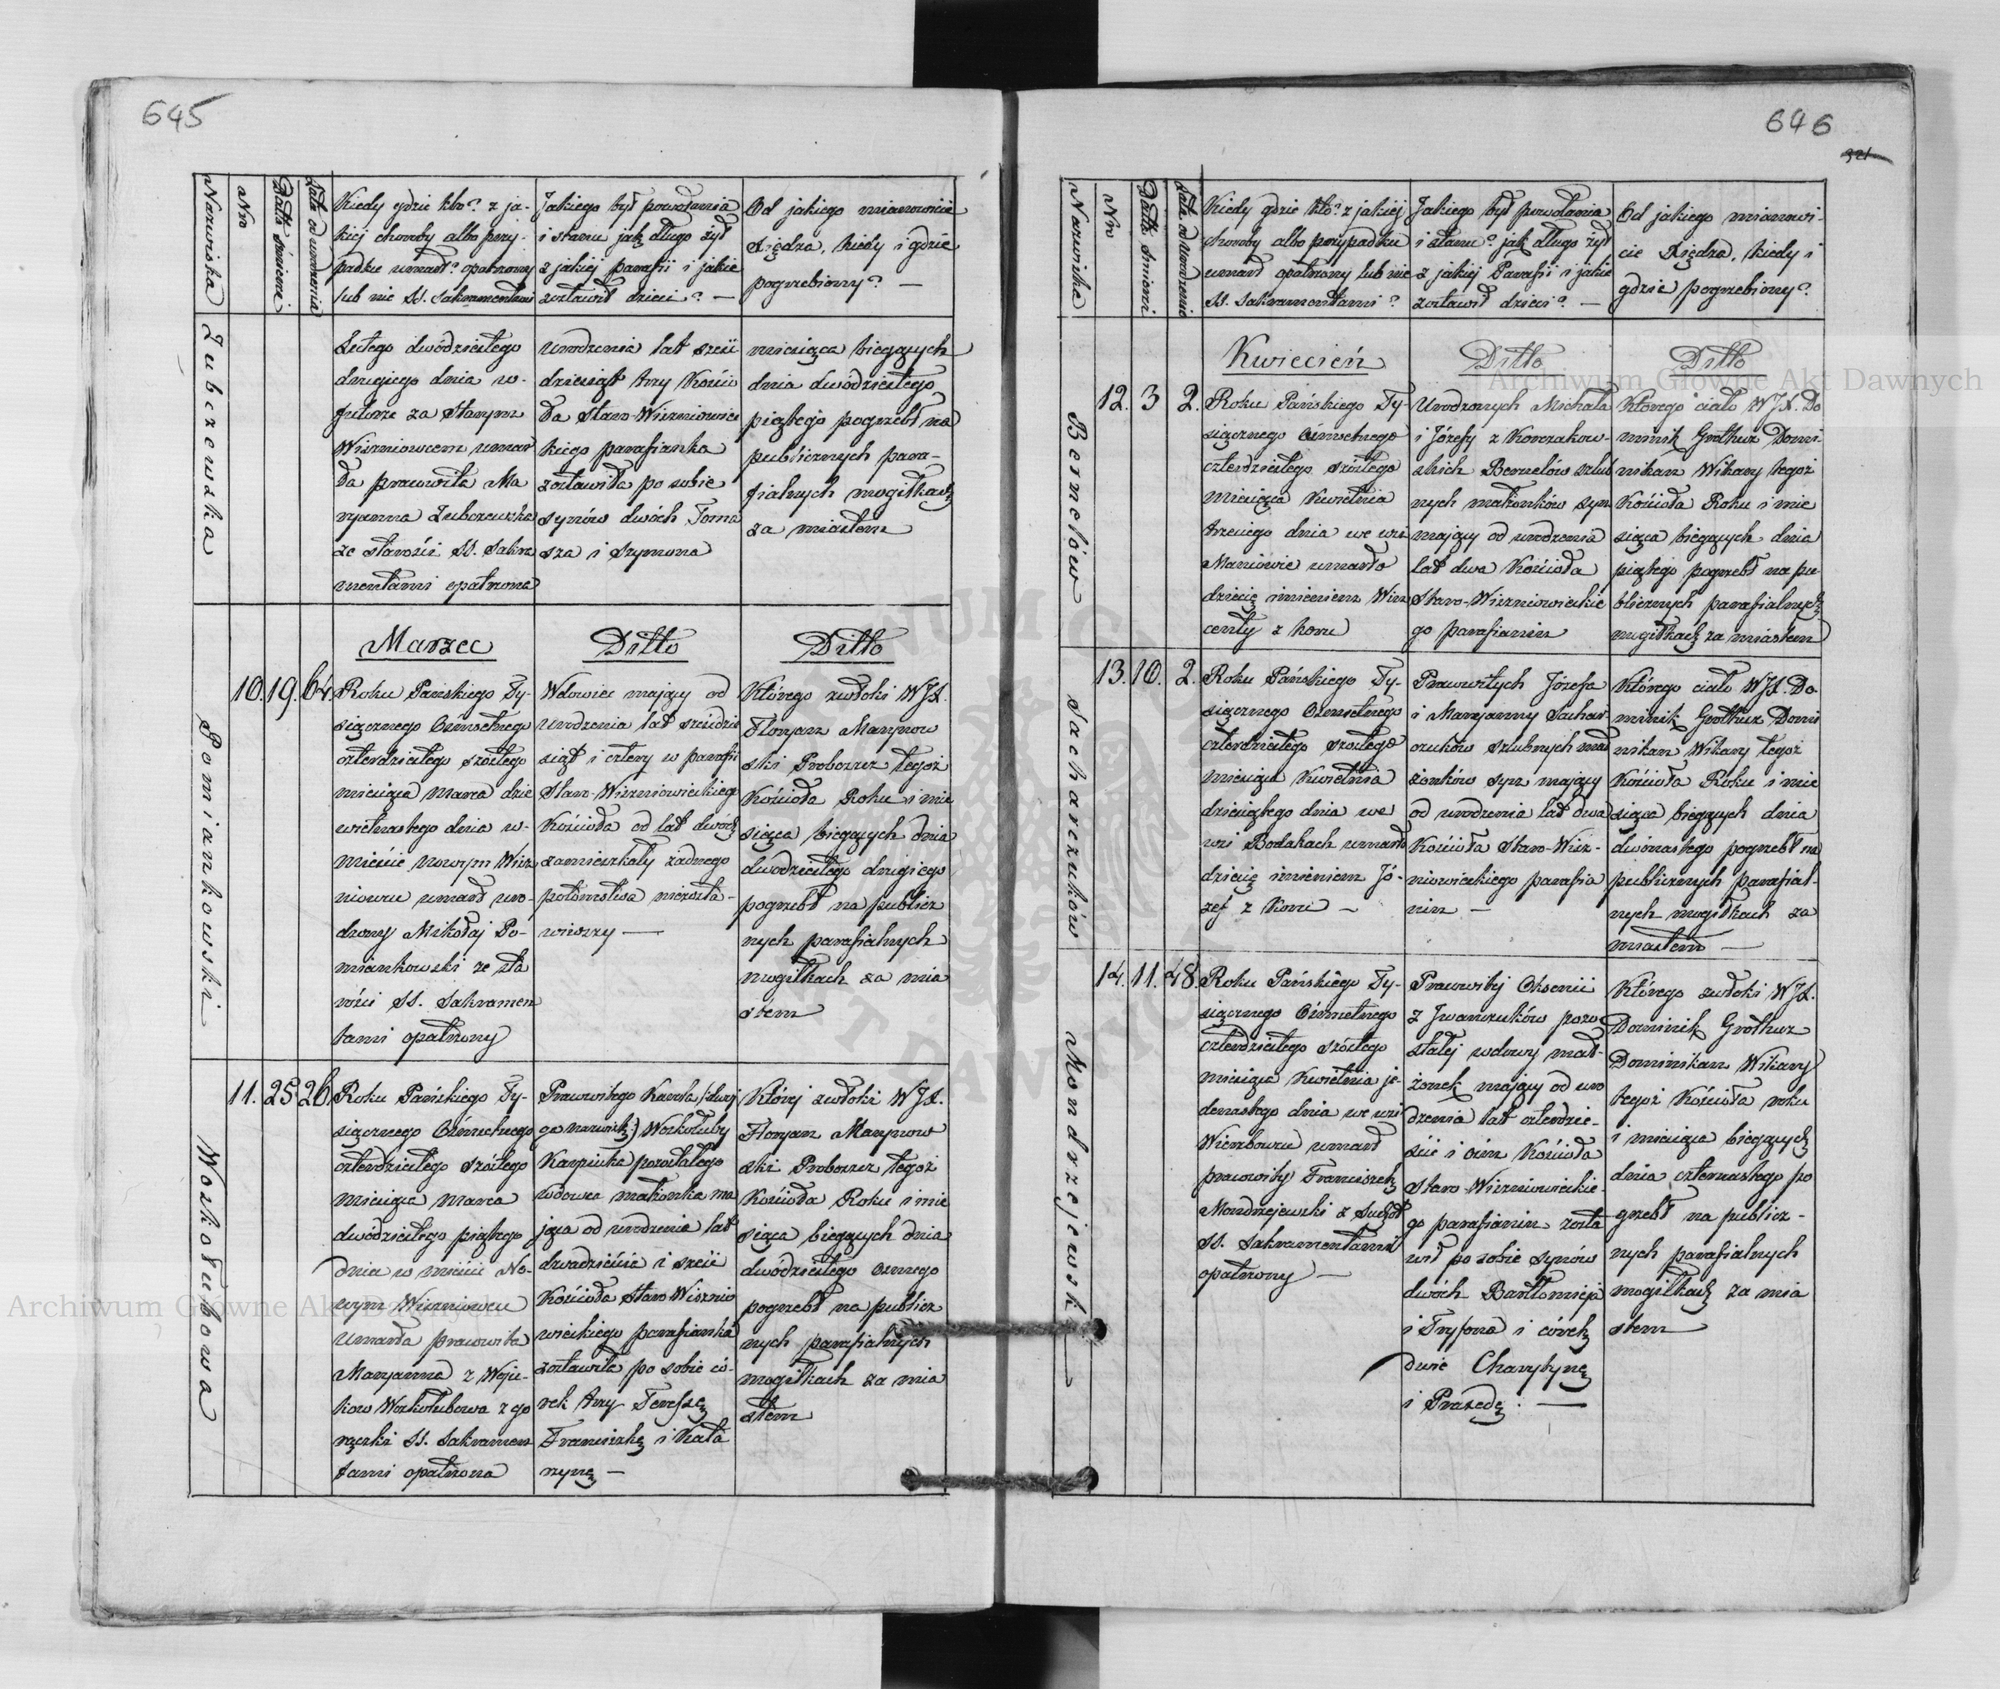 645
Nazwiska
Nro
Data śmierci
Lata od urodzenia
Kiedy gdzie kto? z ja-
kiej choroby albo przy-
padku umarł? opatrzony
lub nie SS. Sakramentami
Jakiego był powołania
i stanu jak długo żył
z jakiej parafii i jakie
zostawił dzieci? —
Od jakiego mianowicie
Xiędza, kiedy i gdzie
pogrzebiony? —
Zubczewska
Lutego dwódziestego
drugiego dnia w
futorze za Starym
Wiszniowcem umar
ła pracowita Ma
ryanna Zubczewska
ze starości SS. Sakra
mentami opatrzona
urodzenia lat sześć
dziesiąt trzy Kościo
ła Staro-Wiszniowiec
kiego parafianka
zostawiła po sobie
synów dwóch Toma
sza i Szymona
miesiąca bieżących
dnia dwódziestego
piątego pogrzebł na
publicznych para-
fialnych mogiłkach
za miastem
Pomiankowski
Marzec
Ditto
Ditto
10.
19.
64.
Roku Pańskiego Ty-
siącznego Ośmsetnego
czterdziestego szóstego
miesiąca Marca dzie
więtnastego dnia w-
mieście nowym Wisz
niowcu umarł uro-
dzony Mikołaj Po-
miankowski ze sta
rości SS. Sakramen
tami opatrzony
Wdowiec mający od
urodzenia lat sześćdzie
siąt i cztery w parafii
Staro-Wiszniowieckiego
Kościoła od lat dwóch
zamieszkały żadnego
potomstwa niezosta-
wiwszy —
Którego zwłoki WJX.
Floryan Marynow
ski Proboszcz tegoż
Kościoła Roku i mie
siąca bieżących dnia
dwódziestego drugiego
pogrzebł na publicz
nych parafialnych
mogiłkach za mia
stem
Wozkołubowa
11.
25
26
Roku Pańskiego Ty-
siącznego Ośmsetnego
czterdziestego szóstego
miesiąca Marca
dwódziestego piątego
dnia w mieście No-
wym Wiszniowcu
umarła pracowita
Maryanna z Woju-
kow Wozkołubowa z go
rączki SS. Sakramen
tami opatrzona
Pracowitego Karola
Wozkołuby
Karpiuka pozostałego
wdowca małżonka ma
jąca od urodzenia lat
dwadzieście i sześć
Kościoła Staro Wisznio
wieckiego parafianka
zostawiła po sobie có-
rek trzy Teressę
Franciszkę i Kata
rzynę —
Której zwłoki WJX.
Floryan Marynow
ski Proboszcz tegoż
Kościoła Roku i mie
siąca bieżących dnia
dwódziestego osmego
pogrzebł na publicz
nych parafialnych
mogiłkach za mia
stem
646
321
Nazwiska
Nro
Data śmierci
Lata od Urodzenia
Kiedy gdzie kto? z jakiej
choroby albo przypadku
umarł opatrzony lub nie
SS. Sakramentami?
Jakiego był powołania
i stanu? jak długo żył
z jakiej Parafii i jakie
zostawił dzieci? —
Od jakiego mianowi-
cie Xiędza, kiedy i
gdzie pogrzebiony?
Bernelów
Kwiecień
Ditto
Ditto
12.
3
2.
Roku Pańskiego Ty-
siącznego Ośmsetnego
czterdziestego szóstego
miesiąca Kwietnia
trzeciego dnia we wsi
Maniowie umarło
dziecię imieniem Win
centy z koru
Urodzonych Michała
i Józefy z Korczakow-
skich Bernelów szlub
nych małżonków syn
mający od urodzenia
lat dwa Kościoła
Staro-Wiszniowieckie
go parafianin
Którego ciało WJX. Do
minik Grothuz Domi-
nikan Wikary tegoż
Kościoła Roku i mie
siąca bieżących dnia
piątego pogrzebł na pu
blicznych parafialnych
mogiłkach za miastem
Sacharczuków
13.
10.
2.
Roku Pańskiego Ty-
siącznego Ośmsetnego
czterdziestego szostego
miesiąca Kwietnia
dziesiątego dnia we
wsi Bodakach umarło
dziecię imieniem Jó-
zef z Koru —
Pracowitych Józefa
i Maryanny Sachar
czuków szlubnych mał
żonków syn mający
od urodzenia lat dwa
Kościoła Staro-Wisz-
niowieckiego parafia
nin —
Którego ciało WJX. Do-
minik Grothuz Domi
nikan Wikary tegoż
Kościoła Roku i mie
siąca bieżących dnia
dwónastego pogrzebł na
publicznych parafial-
nych mogiłkach za
miastem —
Mondrzejewski
14.
11.
48.
Roku Pańskiego Ty-
siącznego Ośmsetnego
czterdziestego szóstego
miesiąca Kwietnia je-
denastego dnia we wsi
Wierzbowcu umarł
pracowity Franciszek
Mondrzejewski z Suchot
SS. Sakramentami
opatrzony —
Pracowitej Oksenii
z Iwanczuków pozo
stałej wdowy mał-
żonek mający od uro
dzenia lat czterdzie-
ście i óśm Kościoła
Staro-Wiszniowieckie-
go parafianin zosta
wił po sobie synów
dwóch Bartłomieja
i Tryfona i córek
dwie Charytynę
i Praxedę. —
Którego zwłoki WJX.
Dominik Grothuz
Dominikan Wikary
tegoż Kościoła roku
i miesiąca bieżących
dnia czternastego po
grzebł na publicz-
nych parafialnych
mogiłkach za mia
stem
Archiwum Główne Akt Dawnych
Archiwum Główne Akt Dawnych